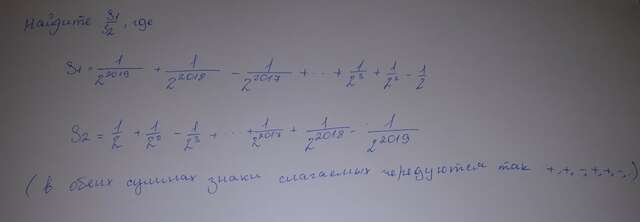 Найдите S1/S2, где
S1 = 1/2^2019 + 1/2^2018 - 1/2^2017 + ... + 1/2^3 + 1/2^2 - 1/2
S2 = 1/2 + 1/2^2 - 1/2^3 + ... + 1/2^2017 + 1/2^2018 - 1/2^2019
(в обеих суммах знаки слагаемых чередуются так +,+,-,+,+,-,.)